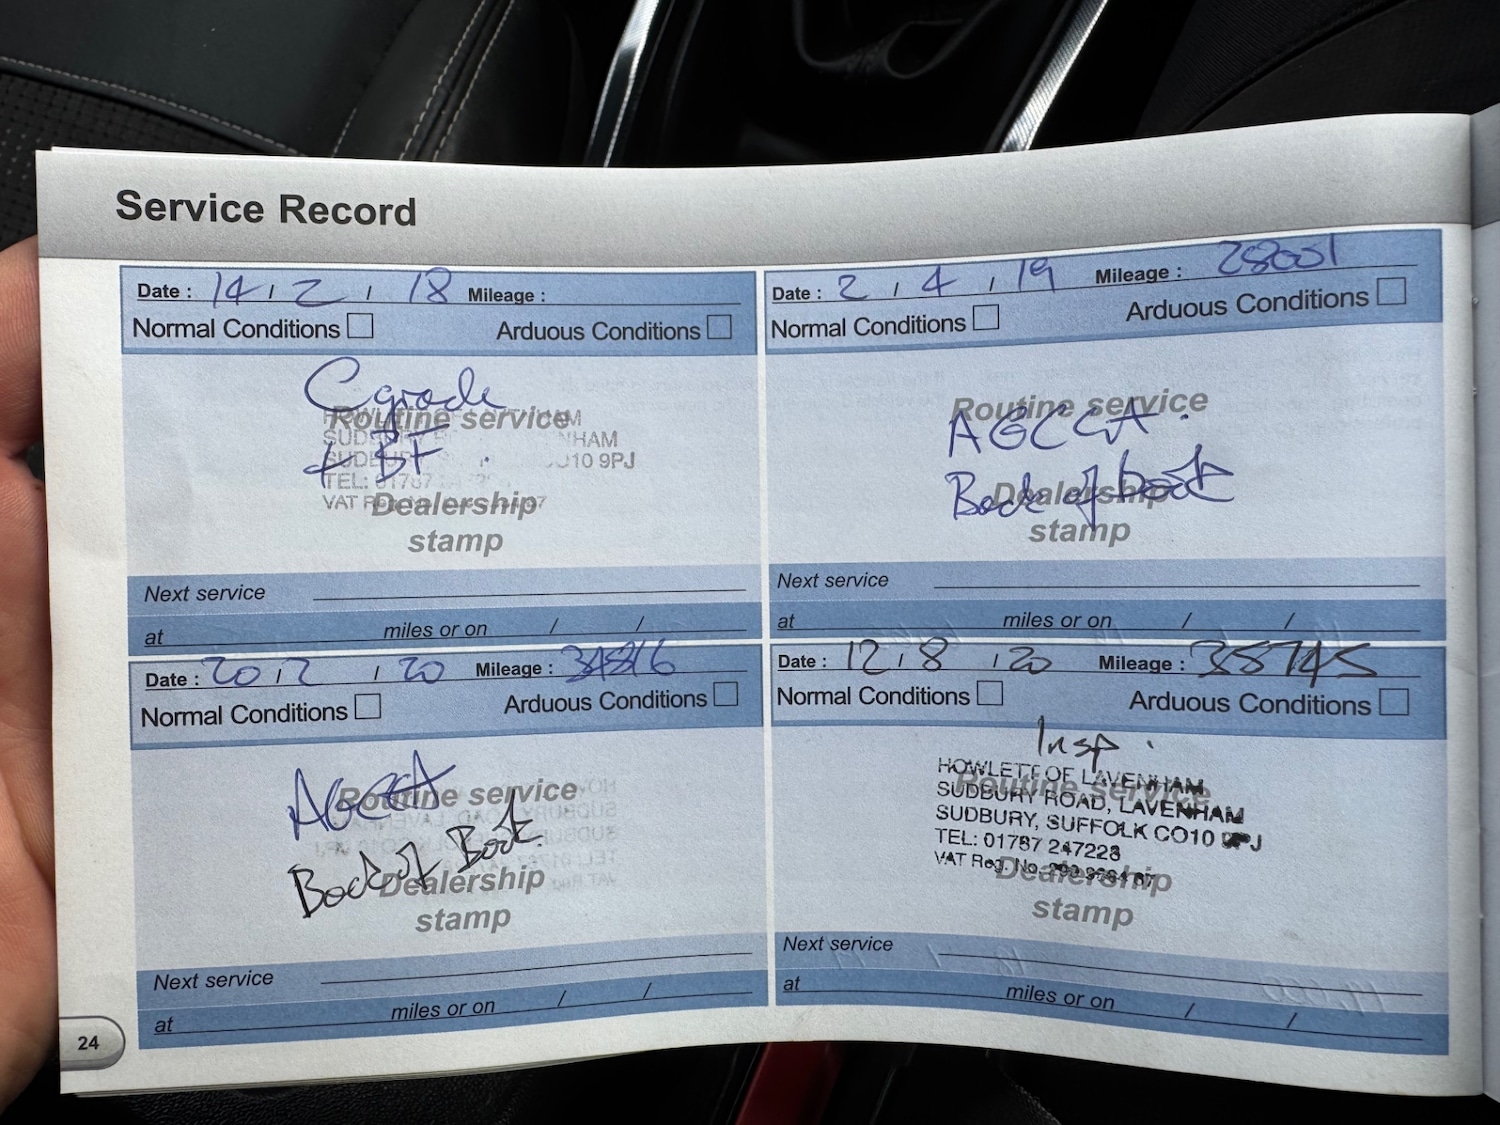 Service Record
Date : 14 / 2 / 18 Mileage :
Normal Conditions Arduous Conditions
C grade
Routine service
& BF.
SUDBURY
CO10 9PJ
TEL: 01787
VAT Reg
Dealership
stamp
Next service
at miles or on / /
Date : 2 / 4 / 19 Mileage : 28001
Normal Conditions Arduous Conditions
Routine service
AGCCA.
Back of boot
Dealership
stamp
Next service
at miles or on / /
Date : 20 / 2 / 20 Mileage :
Normal Conditions Arduous Conditions
Routine service
Back of Boot.
Dealership
stamp
Next service
at miles or on / /
Date : 12 / 8 / 20 Mileage : 38745
Normal Conditions Arduous Conditions
Insp.
HOWLETT OF LAVENHAM
Routine service
SUDBURY ROAD, LAVENHAM
SUDBURY, SUFFOLK CO10 9PJ
TEL: 01787 247228
VAT Reg. No.
Dealership
stamp
Next service
at miles or on / /
24